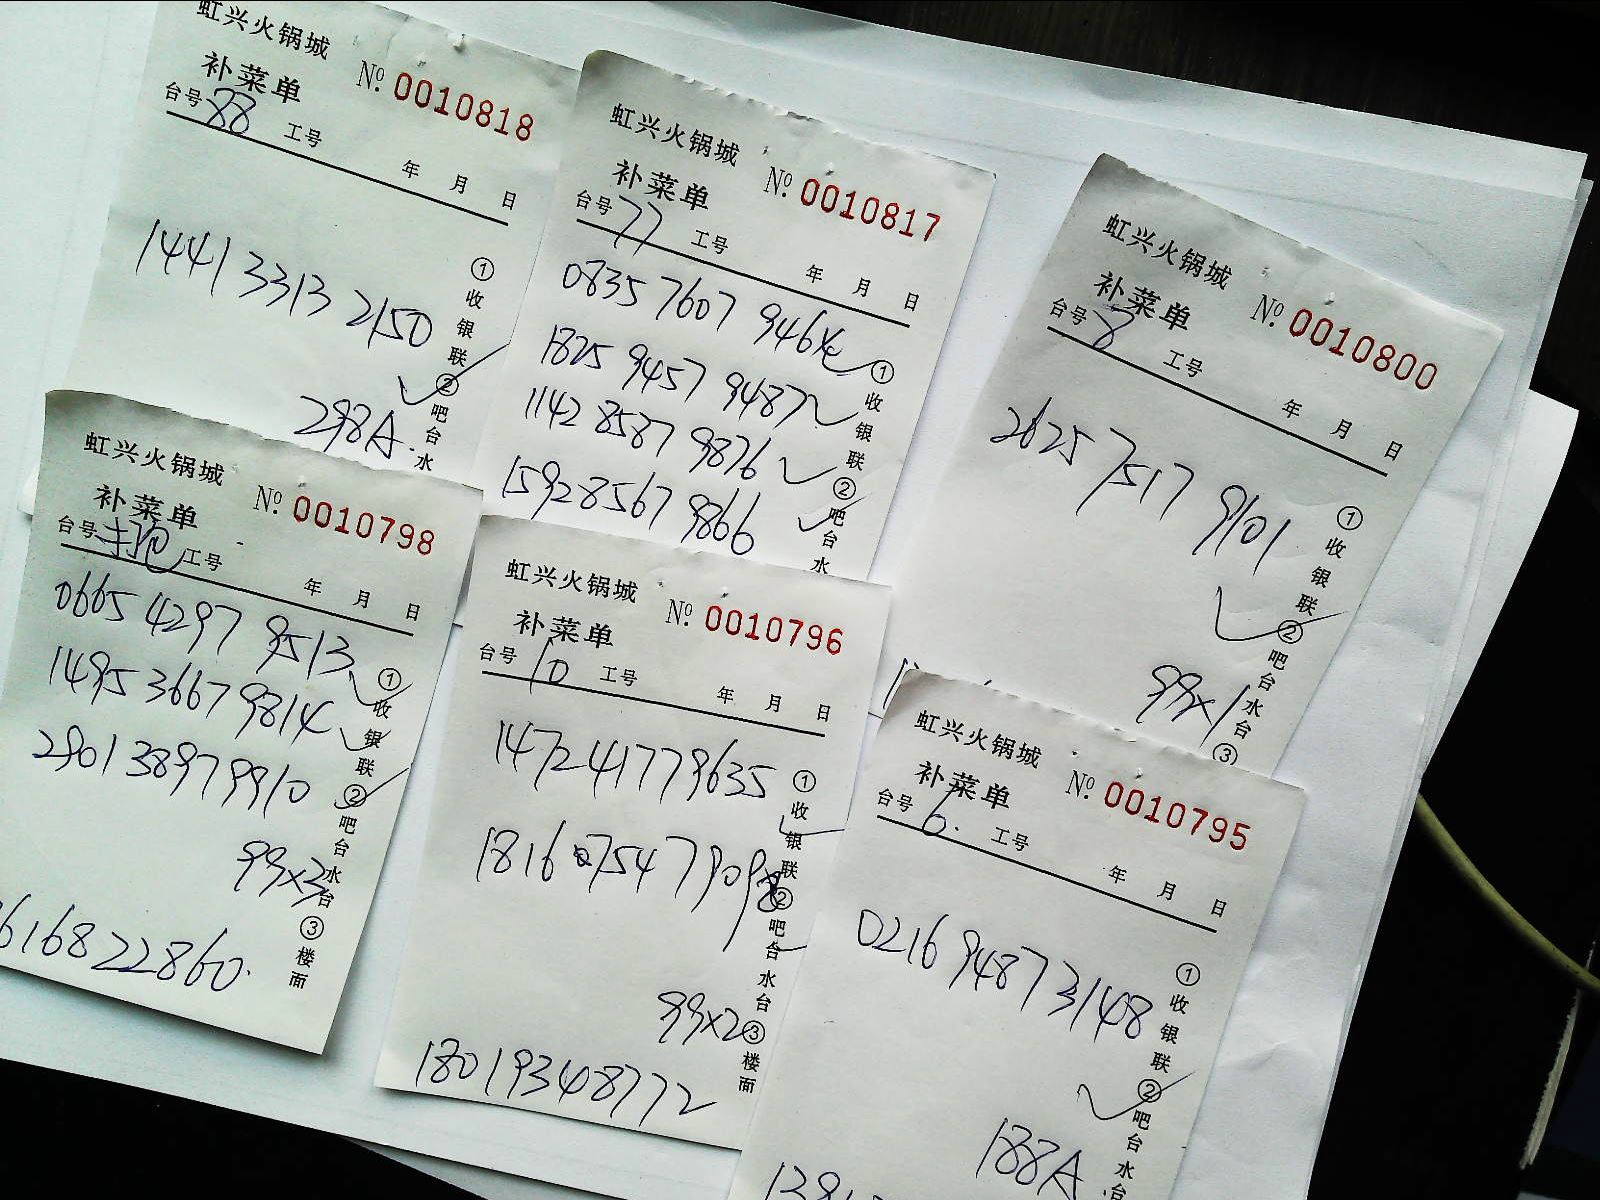 虹兴火锅城
补菜单 No. 0010818
台号 88 工号
年 月 日
1441 3313 2150
298A.
①收银联②吧台水
虹兴火锅城
补菜单 No. 0010817
台号 77 工号
年 月 日
0835 7607
1825 9457 9487
1142 8587 9876
1592 8567 9866
①收银联②吧台水
虹兴火锅城
补菜单 No. 0010800
台号 8 工号
年 月 日
2625 7517 9101
99x1
①收银联②吧台水台③
虹兴火锅城
补菜单 No. 0010798
台号 工号
年 月 日
0665 4297 9513
1495 3667 9814
2901 3897 9910
99x3
616822860.
①收银联②吧台水台③楼面
虹兴火锅城
补菜单 No. 0010796
台号 10 工号
年 月 日
1472 4177 9635
1816 7547 9098
99x2
18019348772
①收银联②吧台水台③楼面
虹兴火锅城
补菜单 No. 0010795
台号 6. 工号
年 月 日
0216 9487 3148
188A
①收银联②吧台水台